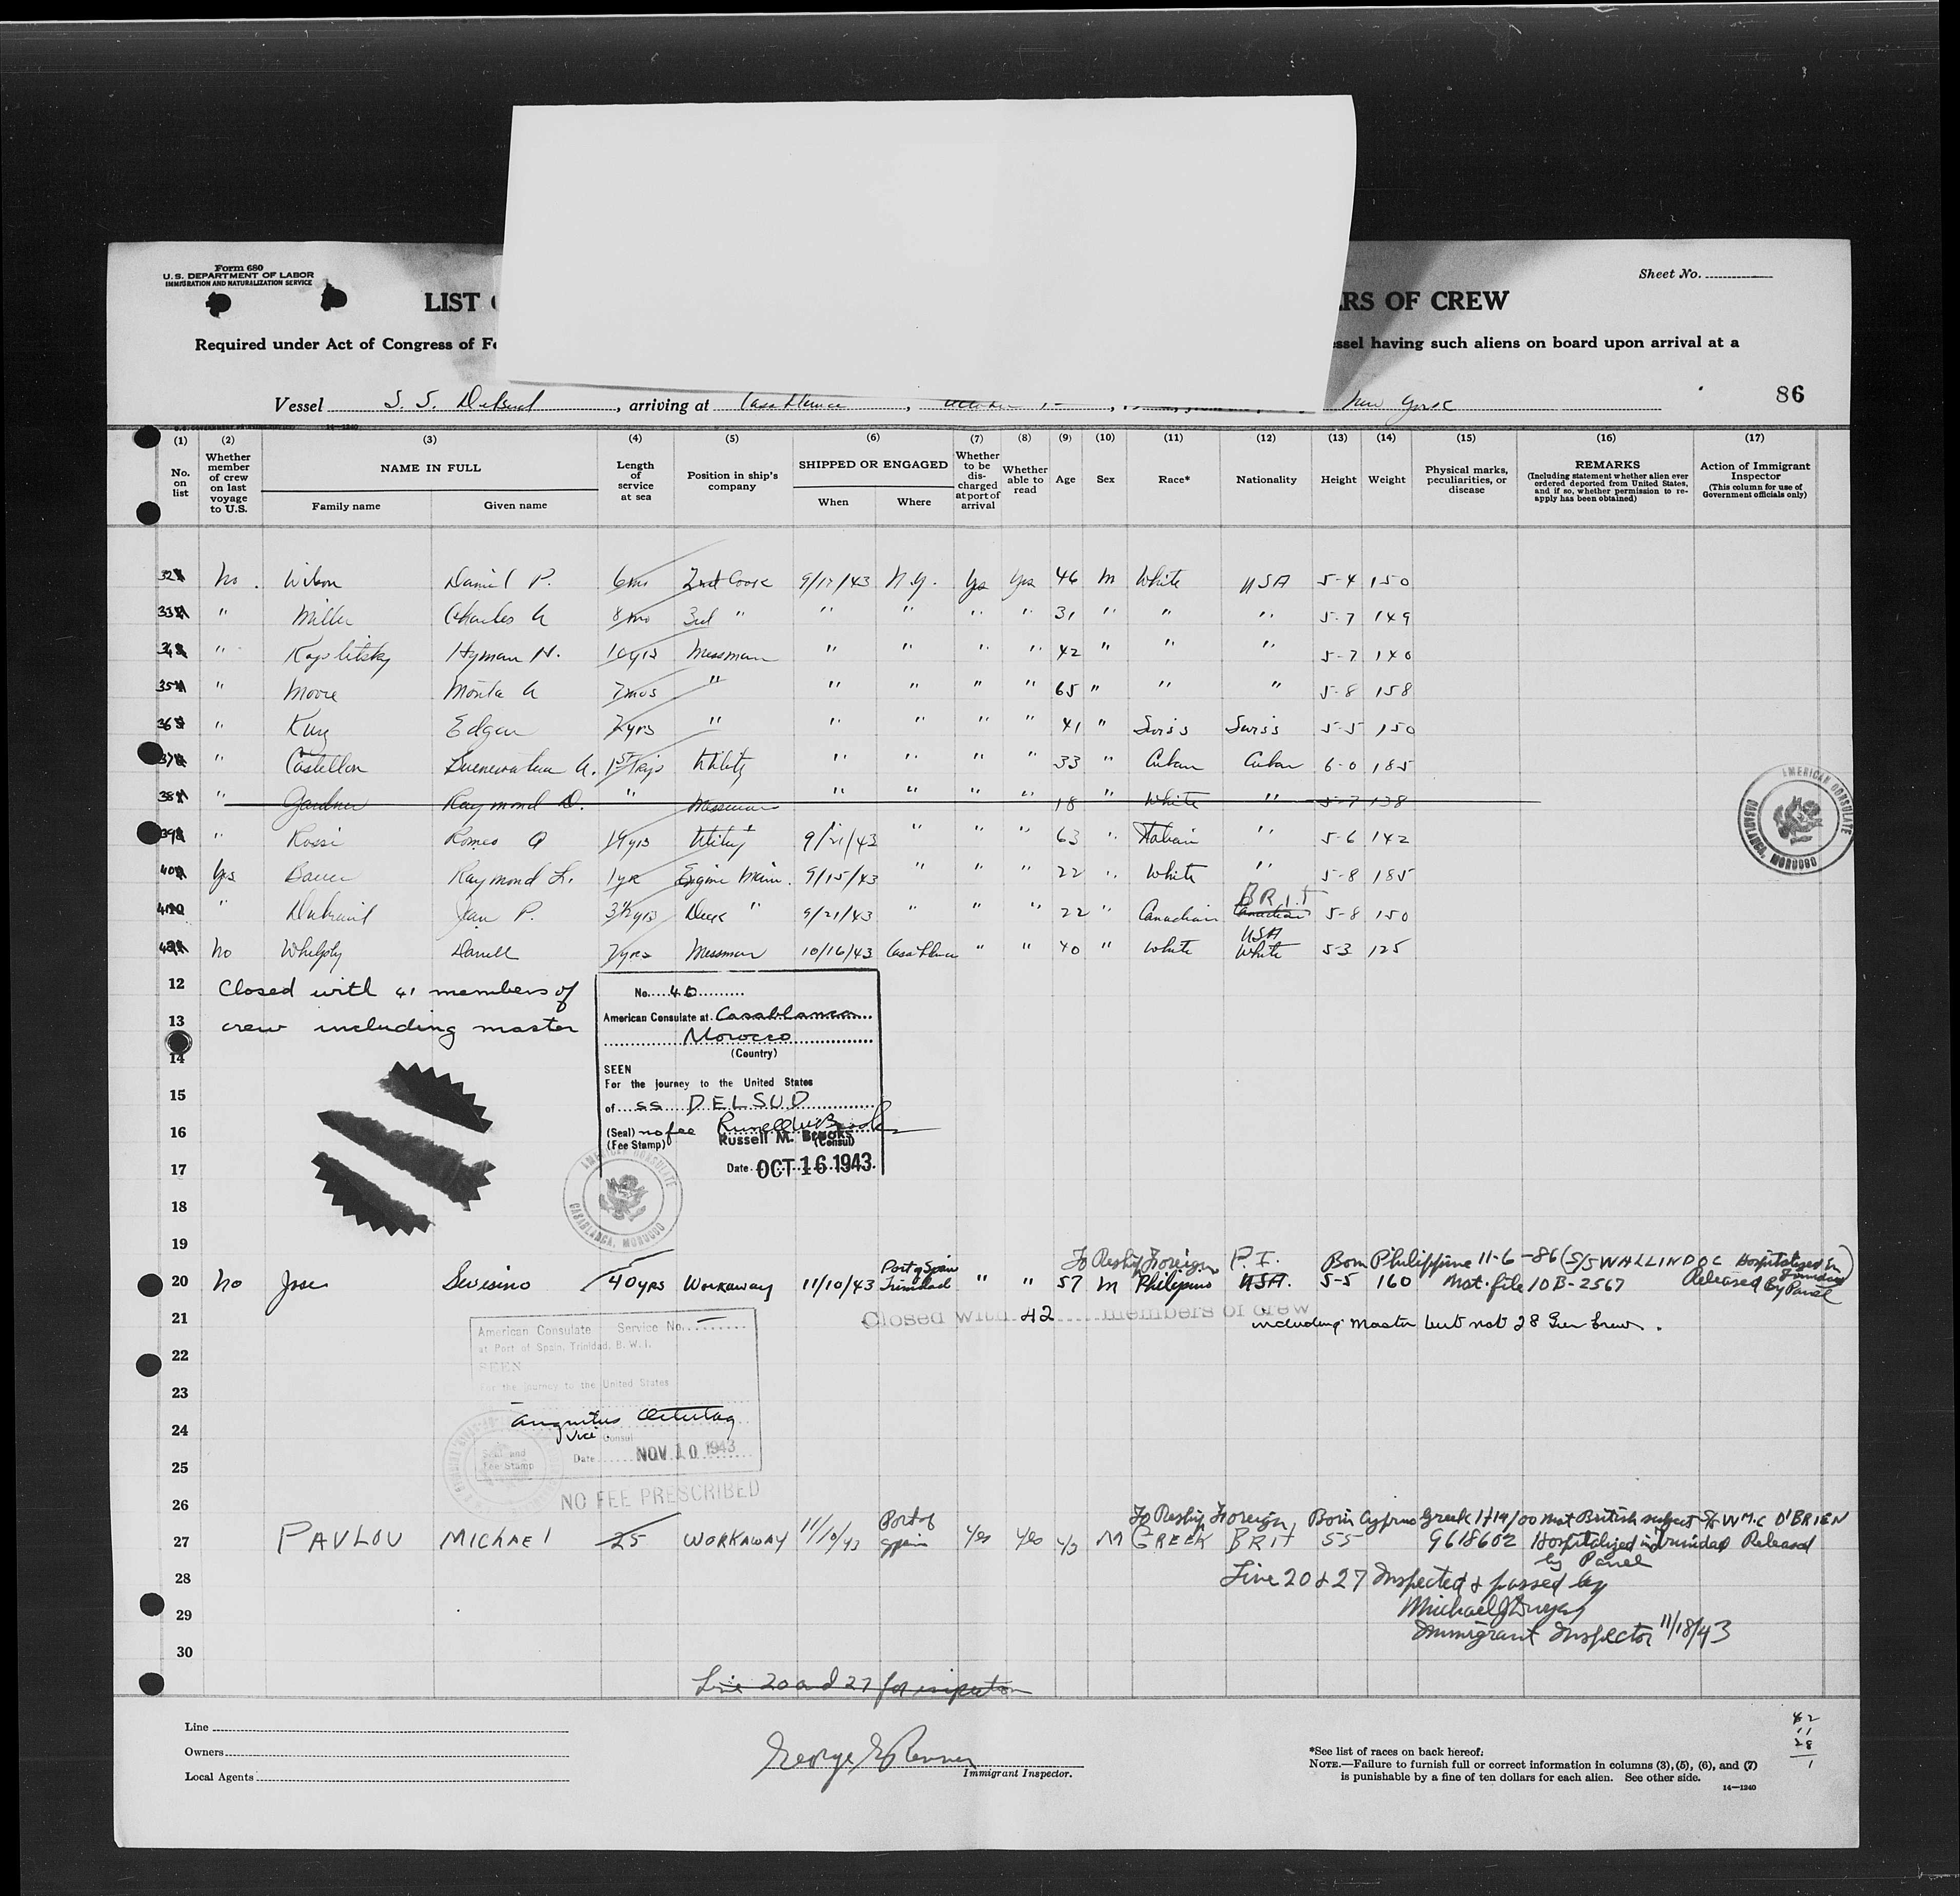 Form 680
U.S. DEPARTMENT OF LABOR
IMMIGRATION AND NATURALIZATION SERVICE
Sheet No.
LIST
RS OF CREW
Required under Act of Congress of Fe
ssel having such aliens on board upon arrival at a
Vessel S. S. Delsud, arriving at Casablanca, New York
86
(1) (2) (3) (4) (5) (6) (7) (8) (9) (10) (11) (12) (13) (14) (15) (16) (17)
No. on list
Whether member of crew on last voyage to U.S.
NAME IN FULL
Family name
Given name
Length of service at sea
Position in ship's company
SHIPPED OR ENGAGED
When
Where
Whether to be discharged at port of arrival
Whether able to read
Age
Sex
Race*
Nationality
Height
Weight
Physical marks, peculiarities, or disease
REMARKS
(Including statement whether alien ever ordered deported from United States, and if so, whether permission to reapply has been obtained)
Action of Immigrant Inspector
(This column for use of Government officials only)
32 No. Wilson Daniel P. 6mo 2nd Cook 9/17/43 N.Y. Yes Yes 46 M White USA 5-4 150
33 " Miller Charles A 8mo 3rd " " " " " 31 " " " 5-7 149
34 " Hyman N. 10yrs Messman " " " " 42 " " " 5-7 140
35 " Moore Monta A 7mos " " " " " 65 " " " 5-8 158
36 " Edgar 2yrs " " " " " 41 " Swiss Swiss 5-5 150
37 " Castellon A. 1st Trip Utility " " " " 33 " Cuban Cuban 6-0 185
38 " Gardner Raymond D. " Messman " " " " 18 " White " 5-7 138
39 " Rossi Romeo 9/21/43 " " " 63 " Italian " 5-6 142
40 Yes Bauer Raymond L. 1yr Engine Main. 9/15/43 " " " 22 " White " 5-8 185
41 " Jean P. 3½yrs Deck " 9/21/43 " " " 22 " Canadian Canadian BRIT 5-8 150
42 No Darrell 2yrs Messman 10/16/43 Casablanca " " 40 " White White USA 5-3 125
12 Closed with 41 members of
13 crew including master
14
15
16
17
18
19
No. 40
American Consulate at Casablanca
Morocco
(Country)
SEEN
For the journey to the United States
of ss DELSUD
(Seal) no fee
(Fee Stamp) Russell M. Brooks (Consul)
Date OCT 16 1943
AMERICAN CONSULATE
CASABLANCA, MOROCCO
AMERICAN CONSULATE
CASABLANCA, MOROCCO
To Reship Foreign P.I. Born Philippine 11-6-86 (S/S WALLINDOC Hospitalized in Trinidad)
20 No Jose Sevisino 40yrs Workaway 11/10/43 Port of Spain Trinidad " " 57 M Philipino USA. 5-5 160 Mst. file 10B-2567 Released By Panel
21 Closed with 42 members of crew
including Master but not 28 Gun Crew.
22
23
24
25
26
American Consulate Service No.
at Port of Spain, Trinidad, B.W.I.
SEEN
For the journey to the United States
Vice Consul
Seal and Fee Stamp
Date NOV 10 1943
NO FEE PRESCRIBED
To Reship Foreign Born Cyprus Greek 1/14/00 not British subject S/S WM. C O'BRIEN
27 PAVLOU MICHAEL 25 WORKAWAY 11/10/43 Port of Spain Yes Yes 43 M GREEK BRIT 55 9618602 Hospitalized in Trinidad Released
by Panel
28 Line 20 & 27 Inspected & passed by
29 Michael J
Immigrant Inspector 11/18/43
30
Line 20 and 27 for inspection
Line
Owners
Local Agents
Immigrant Inspector.
*See list of races on back hereof.
NOTE.—Failure to furnish full or correct information in columns (3), (5), (6), and (7)
is punishable by a fine of ten dollars for each alien. See other side.
14—1240
42
11
28
1